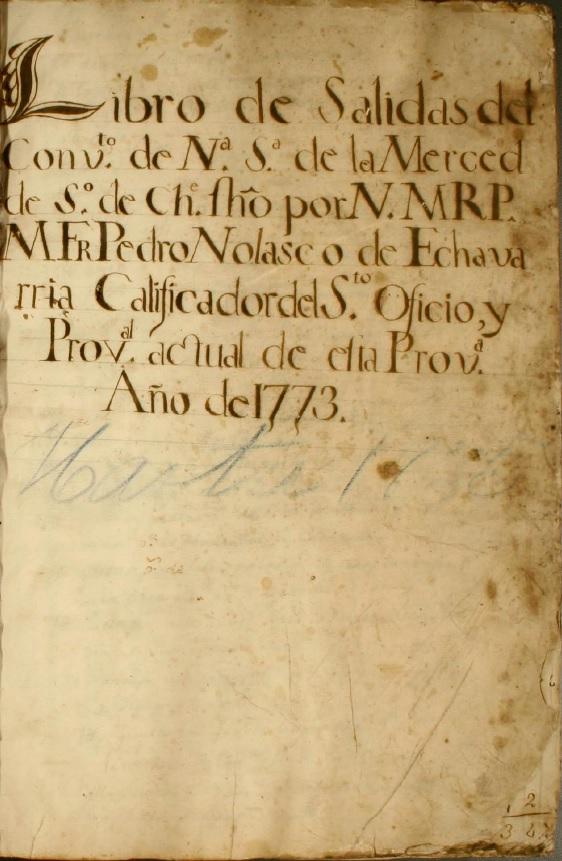 Libro de Salidas del
Conv.to de N.a S.a de la Merced
de S.o de Ch.e fho por N. M R P.
M. Fr Pedro Nolasco de Echava
rria Calificador del S.to Oficio, y
Prov.al actual de esta Prov.a
Año de 1773.
Hasta
2
3